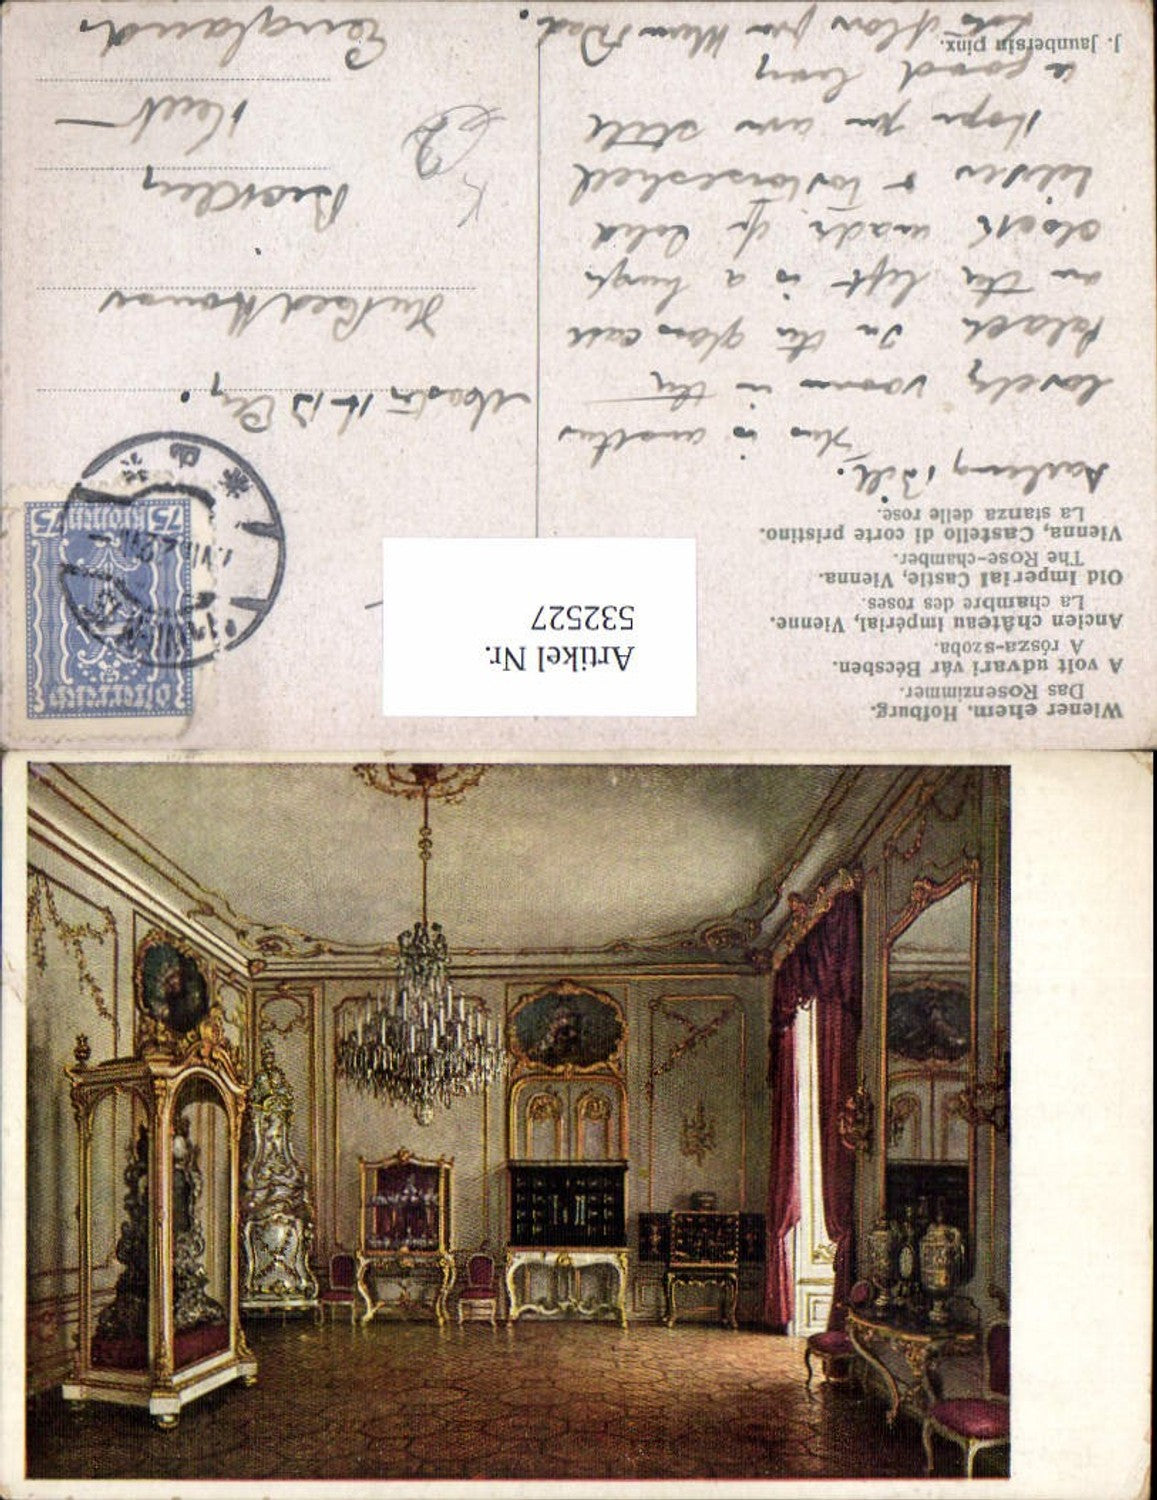 Wiener ehem. Hofburg.
Das Rosenzimmer.
A volt udvari vár Bécsben.
A rósza-szoba.
Ancien château impérial, Vienne.
La chambre des roses.
Old Imperial Castle, Vienna.
The Rose-chamber.
Vienna, Castello di corte pristino.
La stanza delle rose.
Darling Bill.
This is another
lovely room in the
Palace In the glass case
on the left is a huge
clock made of solid
silver & tortoiseshell
Hope you are still
a good boy
Lots of love from Mum & Dad.
J. Jaunbersin pinx.
Artikel Nr.
532527
Österreich
75 Kronen 75
WIEN
Master
Bickley
Kent
England